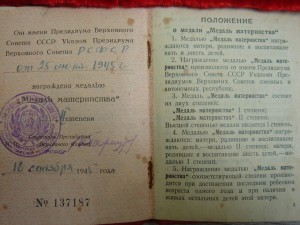 От имени Президиума Верховного
Совета СССР Указом Президиума
Верховного Совета РСФСР
от 25 июня 1945 г.
награждена медалью
„Медаль материнства“
степени
Секретарь Президиума
Верховного Совета
16 октября 1945 года
№ 137187
ПОЛОЖЕНИЕ
о медали „Медаль материнства“
1. „Медалью материнства“ награждаются матери, родившие и воспитавшие
пять и шесть детей.
2. Награждение медалью „Медаль материнства“ производится от имени Президиума
Верховного Совета СССР Указами Президиумов Верховных Советов союзных и
автономных республик.
3. Медаль „Медаль материнства“ состоит
из двух степеней:
„Медаль материнства“ I степени,
„Медаль материнства“ II степени.
Высшей степенью медали является I степень.
4. Медалью „Медаль материнства“ награждаются матери,
родившие и воспитавшие: пять детей,—медалью II степени, шесть детей,—медалью I степени.
5. Награждение медалью „Медаль материнства“ соответствующей степени производится
при достижении последним ребенком возраста одного года и при наличии в
живых остальных детей этой матери.